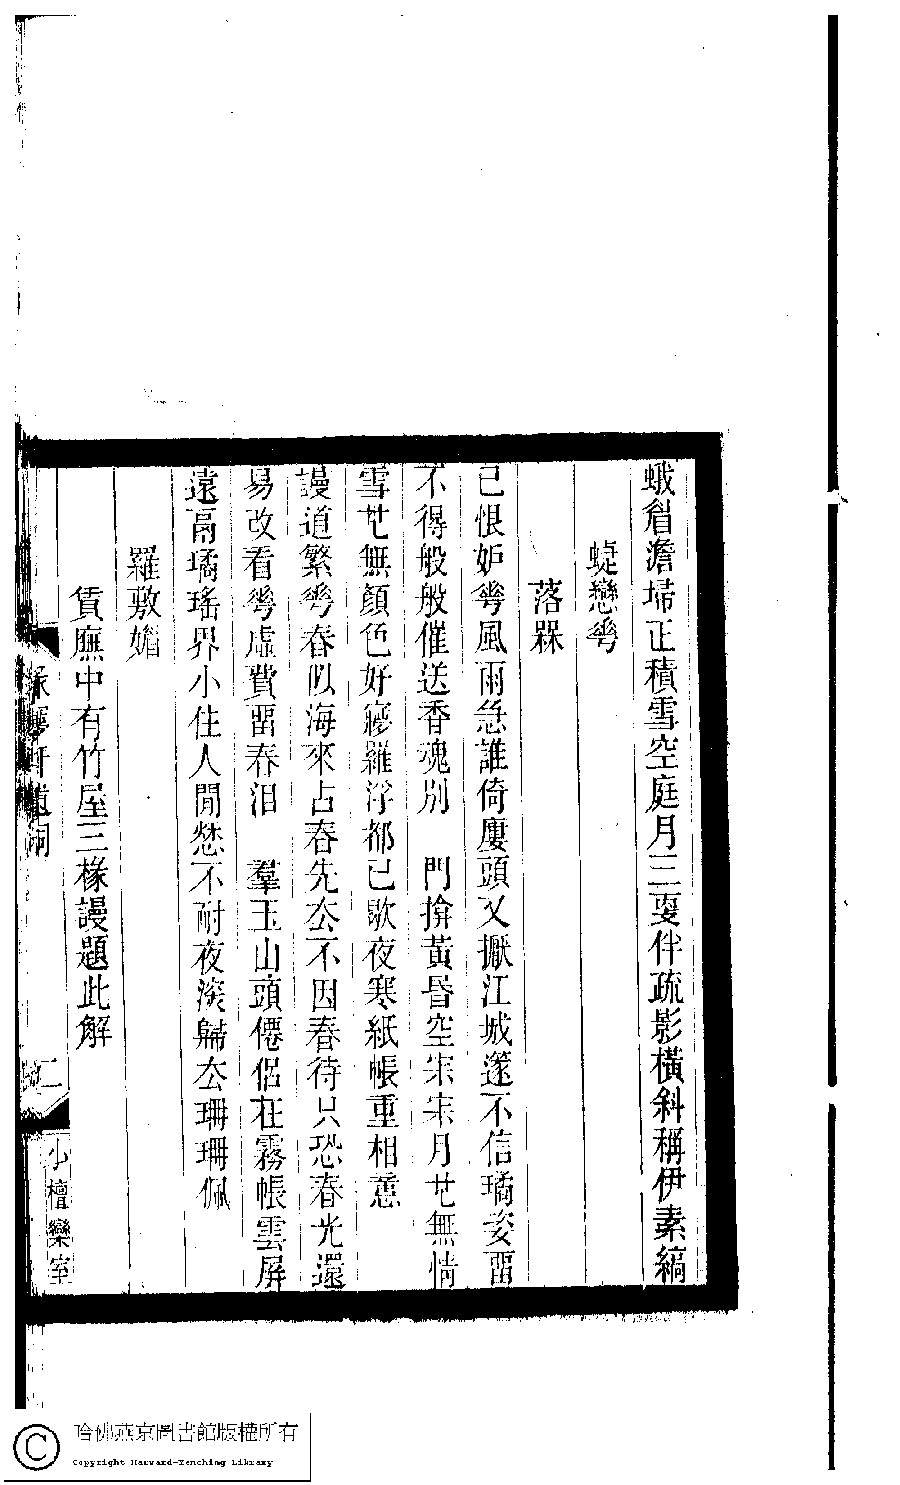 蛾眉澹埽正積雪空庭月三更伴疏影橫斜稱伊素縞
蜨戀蘤
落槑
已恨妒蘤風雨急誰倚廔頭又擫江城篴不信璚姿畱
不得般般催送香魂別　門揜黃昏空宋宋月也無情
雪也無顏色好寱羅浮都已歇夜寒紙帳重相憶
謾道繁蘤春似海來占春先厺不因春待只恐春光還
易改看蘤虛費畱春泪　羣玉山頭僊侶在霧帳雲屏
遠鬲璚瑤界小住人閒愁不耐夜深歸厺珊珊佩
羅敷媚
賃廡中有竹屋三椽謾題此解
二
小檀欒室
哈佛燕京圖書館版權所有
Copyright Harvard-Yenching Library